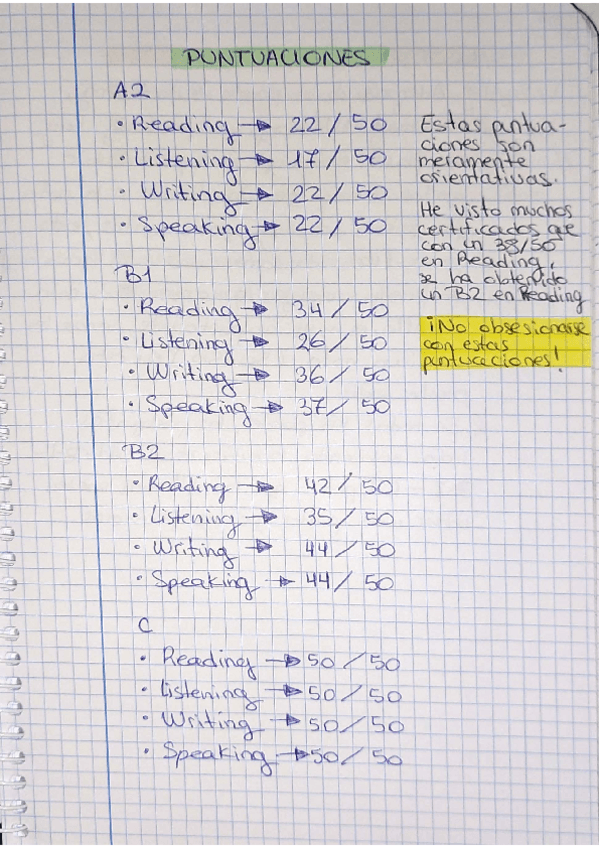 PUNTUACIONES
A2
· Reading → 22 / 50
· Listening → 17 / 50
· Writing → 22 / 50
· Speaking → 22 / 50
B1
· Reading → 34 / 50
· Listening → 26 / 50
· Writing → 36 / 50
· Speaking → 37 / 50
B2
· Reading → 42 / 50
· Listening → 35 / 50
· Writing → 44 / 50
· Speaking → 44 / 50
C
· Reading → 50 / 50
· Listening → 50 / 50
· Writing → 50 / 50
· Speaking → 50 / 50
Estas puntua-
ciones son
meramente
orientativas.
He visto muchos
certificados que
con un 38/50
en Reading,
se ha obtenido
un B2 en Reading
¡No obsesionarse
con estas
puntuaciones!